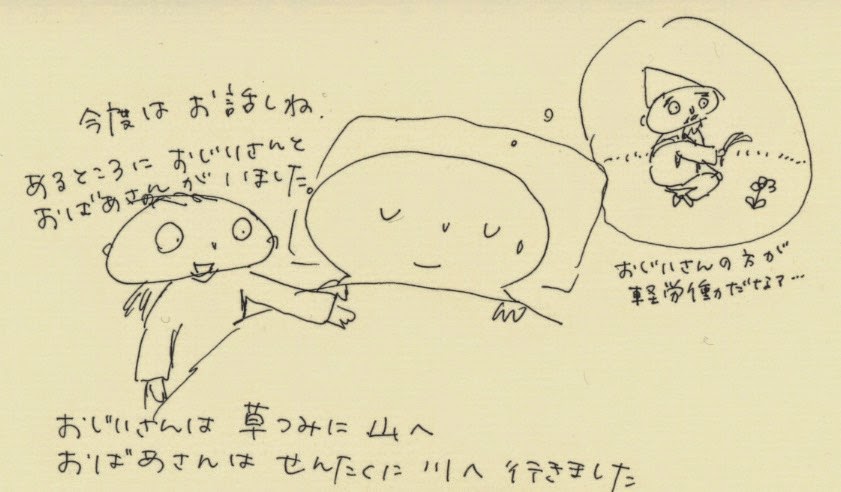 今度は お話しね.
あるところに おじいさんと
おばあさんが いました。
おじいさんの方が
軽労働だなァ…
おじいさんは 草つみに 山へ
おばあさんは せんたくに 川へ 行きました